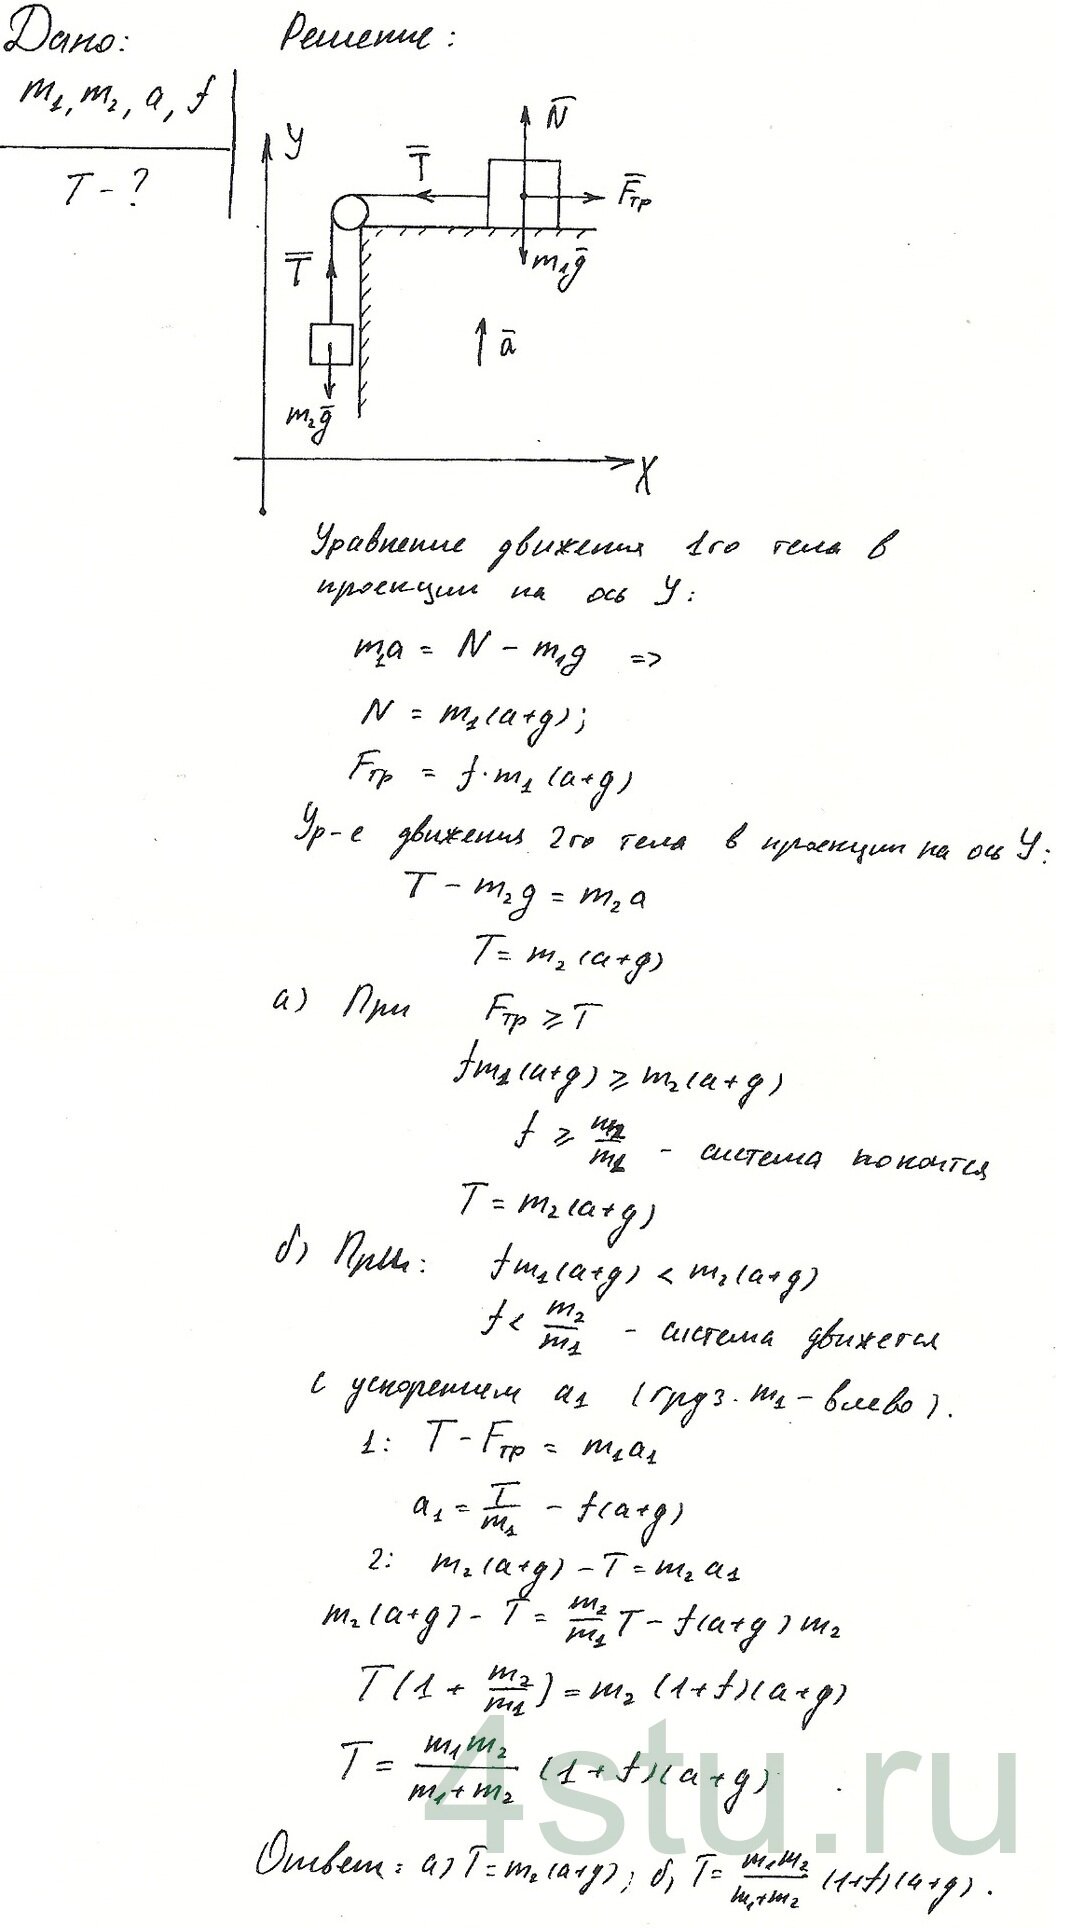 Дано:
Решение:
m₁, m₂, a, f
T - ?
Y
N̄
T̄
F̄тр
m₁ḡ
T̄
ā
m₂ḡ
X
Уравнение движения 1го тела в
проекции на ось Y:
m₁a = N - m₁g =>
N = m₁(a+g);
Fтр = f·m₁(a+g)
Ур-е движения 2го тела в проекции на ось Y:
T - m₂g = m₂a
T = m₂(a+g)
а) При Fтр ≥ T
fm₁(a+g) ≥ m₂(a+g)
f ≥ m₂/m₁ - система покоится
T = m₂(a+g)
б) При: fm₁(a+g) < m₂(a+g)
f < m₂/m₁ - система движется
с ускорением a₁ (груз. m₁ - влево).
1: T - Fтр = m₁a₁
a₁ = T/m₁ - f(a+g)
2: m₂(a+g) - T = m₂a₁
m₂(a+g) - T = m₂/m₁ T - f(a+g)m₂
T(1 + m₂/m₁) = m₂(1+f)(a+g)
T = m₁m₂/m₁+m₂ (1+f)(a+g)
4stu.ru
Ответ: а) T = m₂(a+g); б) T = m₁m₂/m₁+m₂ (1+f)(a+g).